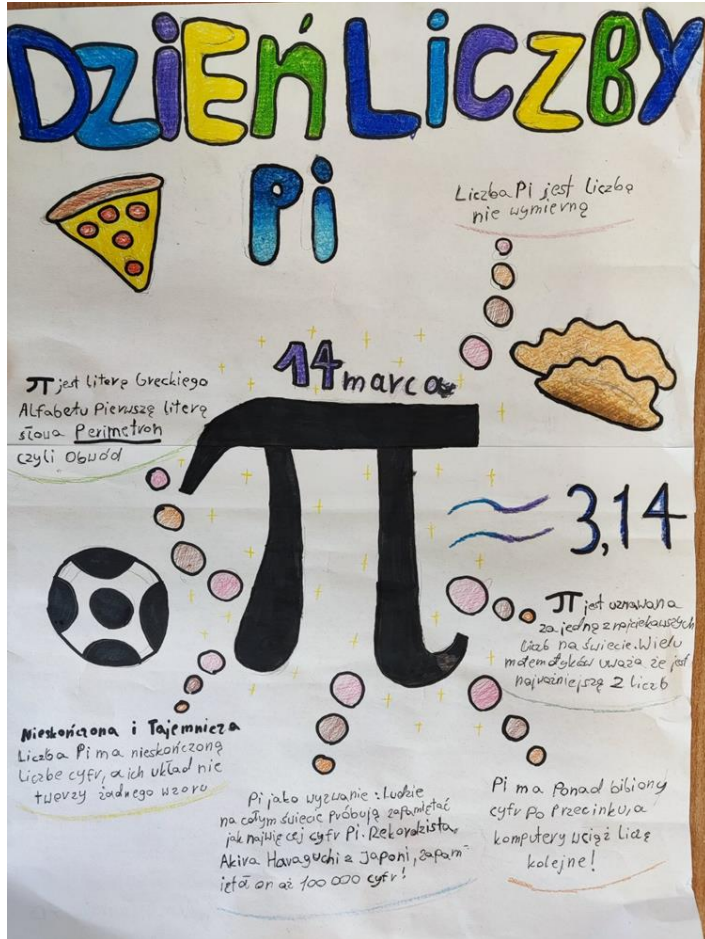 DZIEŃ LICZBY
Pi
Liczba Pi jest liczbą
nie wymierną
14 marca
π jest literą Greckiego
Alfabetu Pierwszą literą
słowa Perimetron
czyli Obwód
π
≈ 3,14
π jest uznawana
za jedną z najciekawszych
liczb na świecie. Wielu
matematyków uważa że jest
najważniejszą z liczb
Nieskończona i Tajemnicza
Liczba Pi ma nieskończoną
Liczbe cyfr, a ich układ nie
tworzy żadnego wzoru
Pi jako wyzwanie: Ludzie
na całym świecie próbują zapamiętać
jak najwięcej cyfr Pi. Rekordzista,
Akira Haraguchi z Japoni, zapam-
iętał on aż 100 000 cyfr!
Pi ma Ponad bibiony
cyfr Po Przecinku, a
komputery wciąż liczą
kolejne!